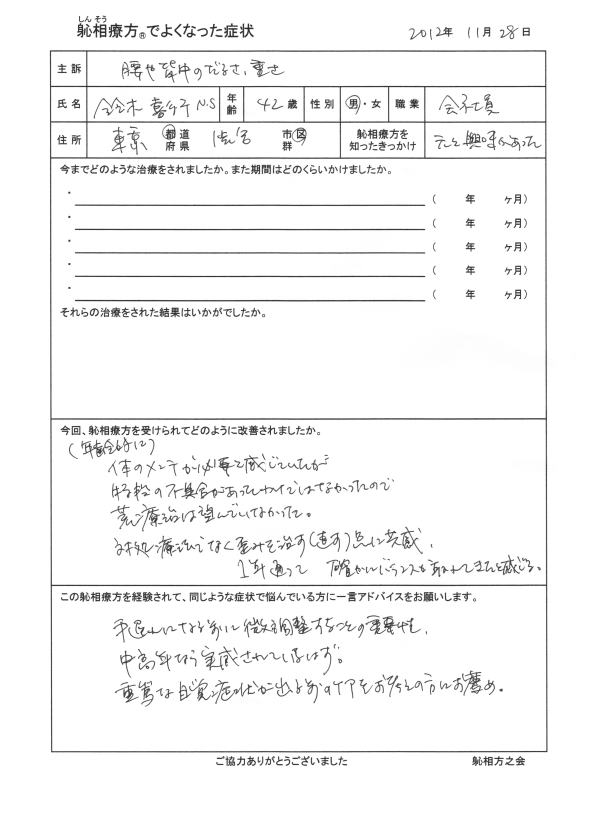 しん そう
鉥相療方®でよくなった症状
2012年 11月 28日
主訴 腰や背中のだるさ、重さ
氏名 鈴木 N.S 年齢 42歳 性別 男・女 職業 会社員
住所 東京 都道府県 渋谷 市区群 相療方を知ったきっかけ 元々興味があった
今までどのような治療をされましたか。また期間はどのくらいかけましたか。
・ ( 年 ヶ月)
・ ( 年 ヶ月)
・ ( 年 ヶ月)
・ ( 年 ヶ月)
・ ( 年 ヶ月)
それらの治療をされた結果はいかがでしたか。
今回、相療方を受けられてどのように改善されましたか。
(年齢的に)
体のメンテが必要と感じていたが
特段の不具合があったわけではなかったので
荒療治は望んでいなかった。
対処療法でなく歪みを治す(直す)点に共感、
1年通って 確かにバランスが取れてきたと感じる。
この相療方を経験されて、同じような症状で悩んでいる方に一言アドバイスをお願いします。
手遅れになる前に微調整することの重要性を、
中高年なら実感されているはず。
重篤な自覚症状が出る前のケアをお考えの方にお薦め。
ご協力ありがとうございました
相方之会